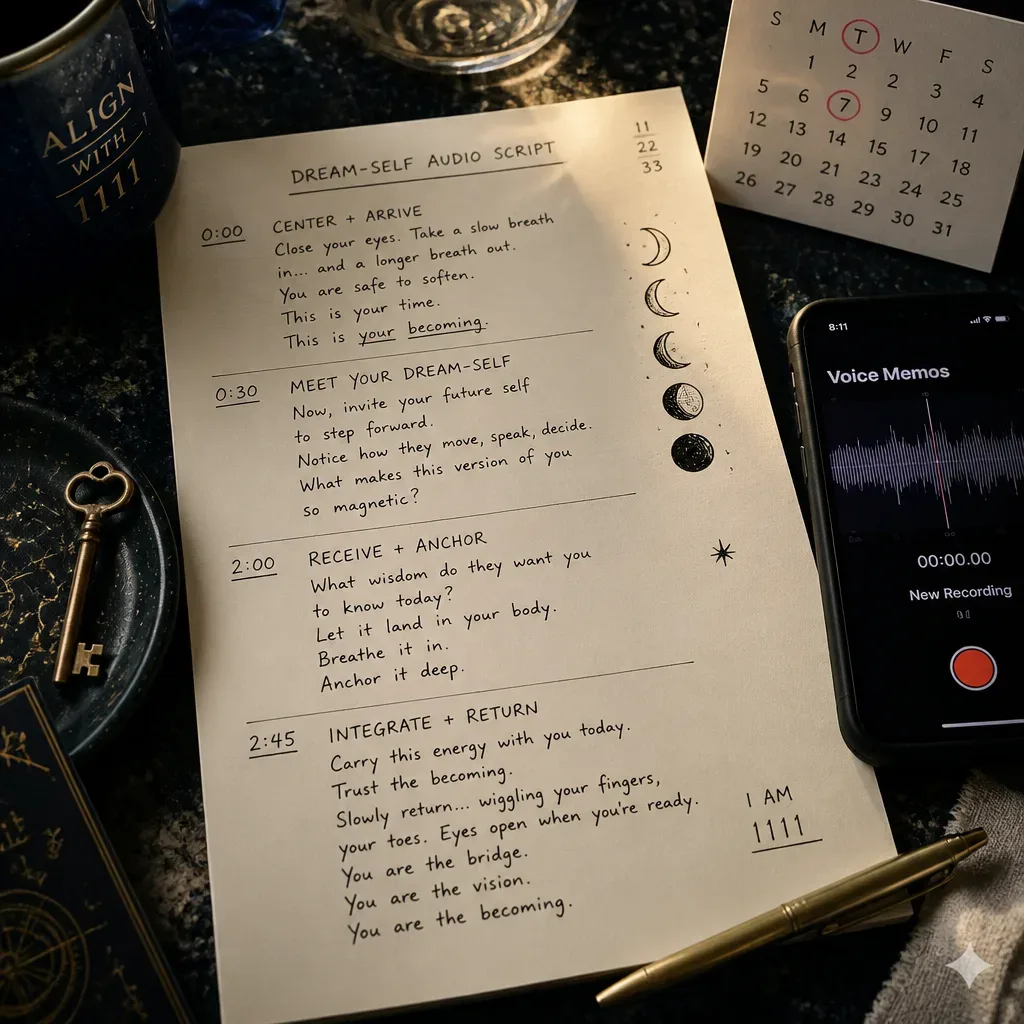 ALIGN
WITH
1111
DREAM-SELF AUDIO SCRIPT
11
22
33
0:00 CENTER + ARRIVE
Close your eyes. Take a slow breath
in... and a longer breath out.
You are safe to soften.
This is your time.
This is your becoming.
0:30 MEET YOUR DREAM-SELF
Now, invite your future self
to step forward.
Notice how they move, speak, decide.
What makes this version of you
so magnetic?
2:00 RECEIVE + ANCHOR
What wisdom do they want you
to know today?
Let it land in your body.
Breathe it in.
Anchor it deep.
2:45 INTEGRATE + RETURN
Carry this energy with you today.
Trust the becoming.
Slowly return... wiggling your fingers,
your toes. Eyes open when you're ready.
You are the bridge.
You are the vision.
You are the becoming.
I AM
1111
S M T W F S
1 2 2 3 4
5 6 7 9 10 11
12 13 14 15 17 18
19 20 21 23 24 25
26 27 28 29 30 31
8:11
Voice Memos
00:00.00
New Recording